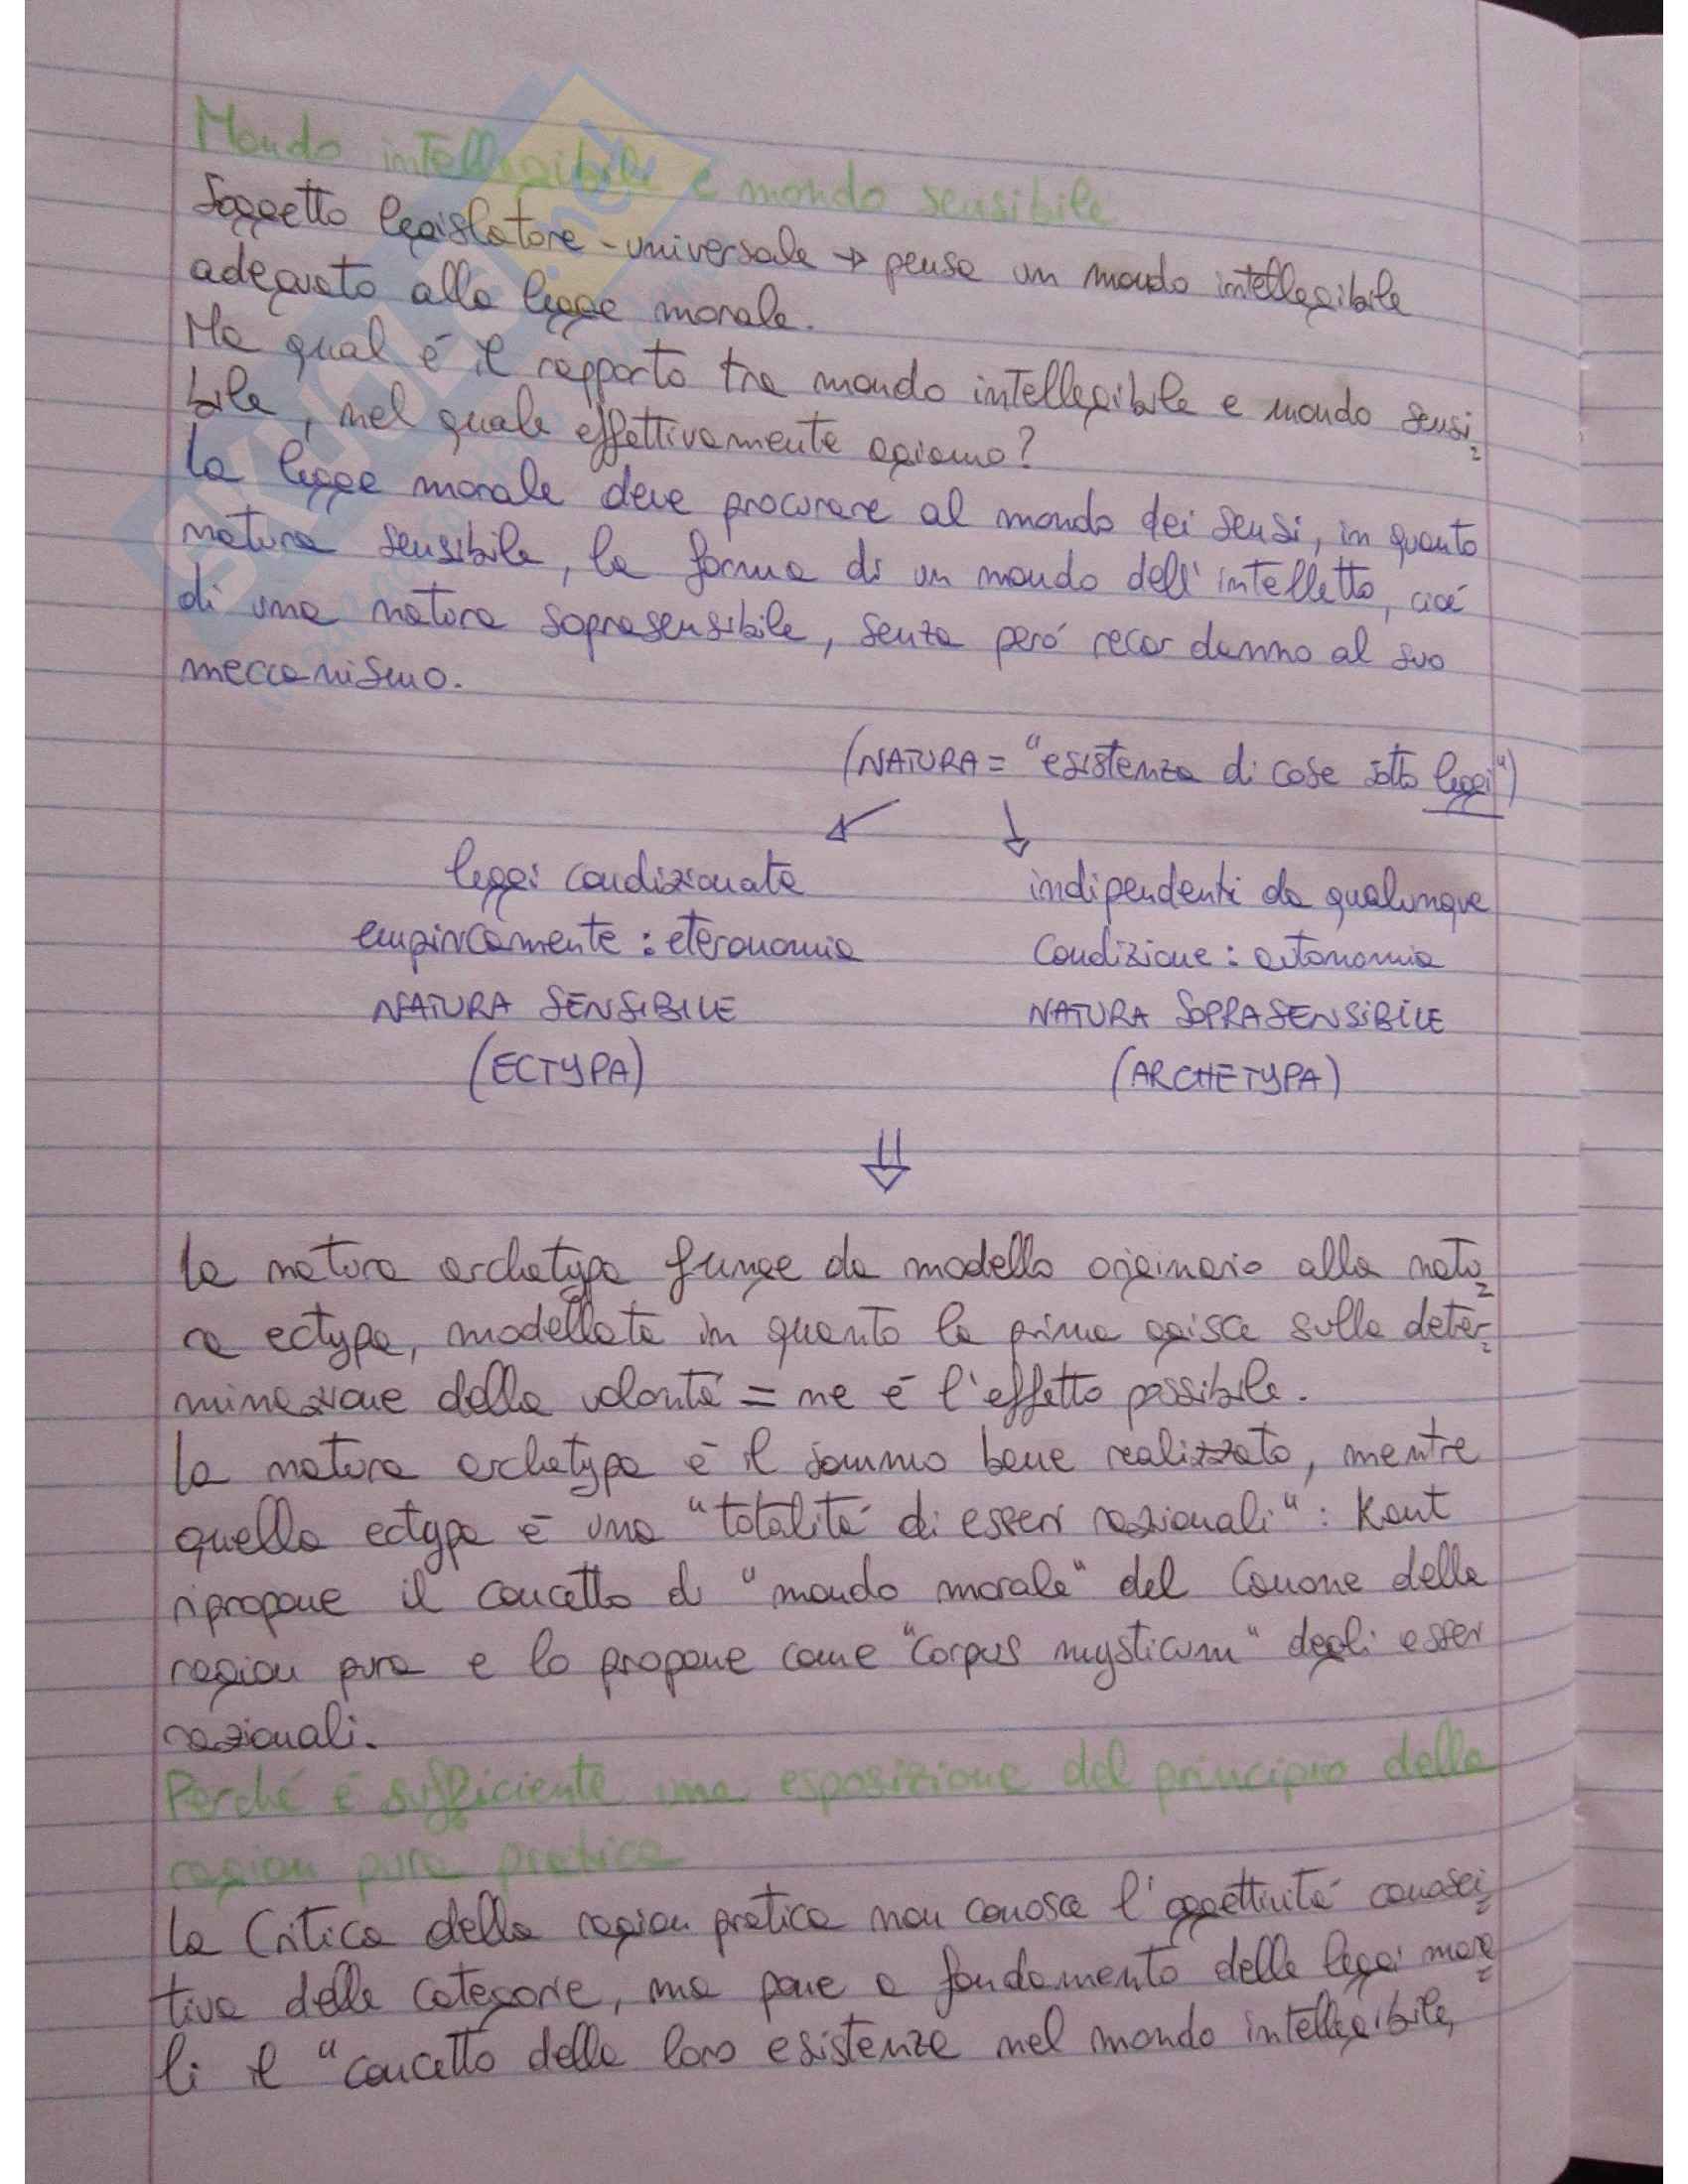 Mondo intellegibile e mondo sensibile
Soggetto legislatore-universale → pensa un mondo intellegibile
adeguato alla legge morale.
Ma qual é il rapporto tra mondo intellegibile e mondo sensi
bile, nel quale effettivamente agiamo?
La legge morale deve procurare al mondo dei sensi, in quanto
natura sensibile, la forma di un mondo dell'intelletto, cioé
di una natura soprasensibile, senza peró recar danno al suo
meccanismo.
(NATURA = "esistenza di cose sotto leggi")
leggi condizionate
empiricamente: eteronomia
NATURA SENSIBILE
(ECTYPA)
indipendenti da qualunque
condizione: autonomia
NATURA SOPRASENSIBILE
(ARCHETYPA)
⇓
La natura archetypa funge da modello originario alla natu
ra ectypa, modellata in quanto la prima agisce sulla deter
minazione della volontá = ne é l'effetto possibile.
La natura archetypa é il sommo bene realizzato, mentre
quella ectypa é una "totalitá di esseri razionali": Kant
ripropone il concetto di "mondo morale" del Canone della
ragion pura e lo propone come "corpus mysticum" degli esseri
razionali.
Perché é sufficiente una esposizione del principio della
ragion pura pratica
La Critica della ragion pratica non conosce l'oggettivitá conosci
tiva delle categorie, ma pone a fondamento delle leggi mora
li il "concetto della loro esistenza nel mondo intellegibile,